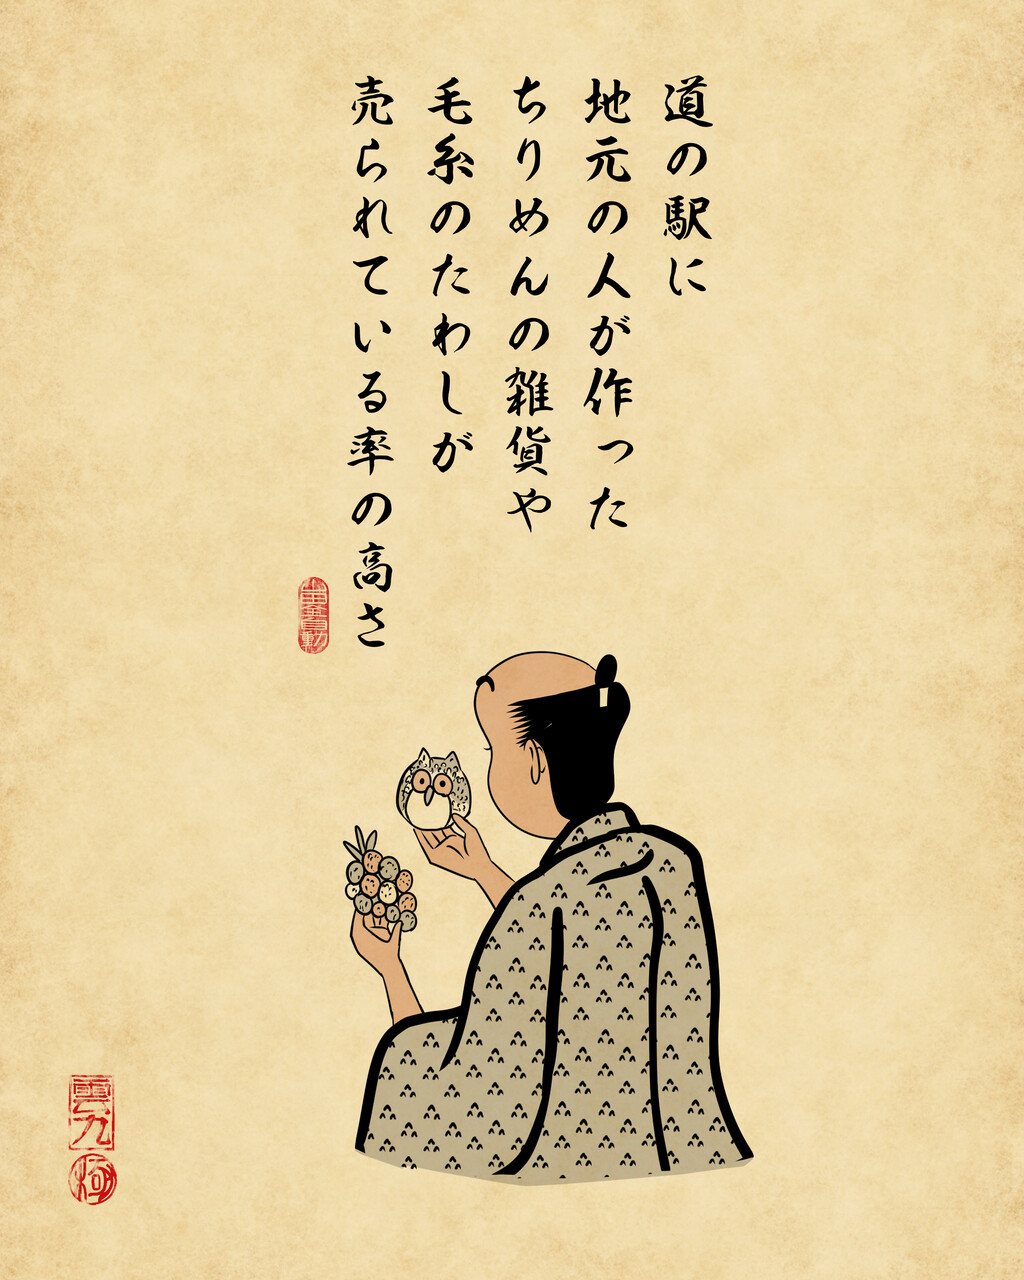 道の駅に
地元の人が作った
ちりめんの雑貨や
毛糸のたわしが
売られている率の高さ